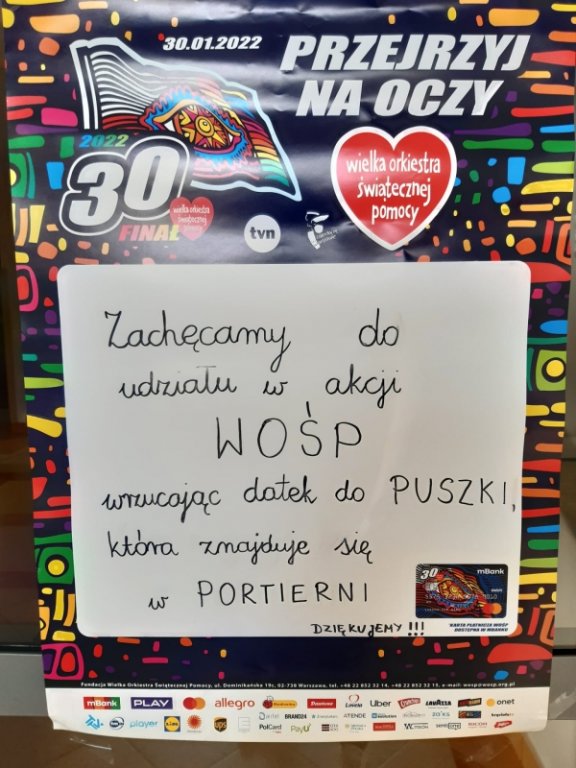 30.01.2022
PRZEJRZYJ
NA OCZY
2022
30
FINAŁ
wielka orkiestra
świątecznej
pomocy
tvn
wielka orkiestra
świątecznej
pomocy
Zachęcamy do
udziału w akcji
WOŚP
wrzucając datek do PUSZKI,
która znajduje się
w PORTIERNI
DZIĘKUJEMY!!!
30
mBank
KARTA PŁATNICZA WOŚP
DOSTĘPNA W MBANKU
Fundacja Wielka Orkiestra Świątecznej Pomocy, ul. Dominikańska 19c, 02-738 Warszawa, tel. +48 22 852 32 14, +48 22 852 32 15, e-mail: wosp@wosp.org.pl
mBank PLAY allegro Uber LAVAZZA onet
player Lidl ups PolCard PayU
BRAND24 ATENDE